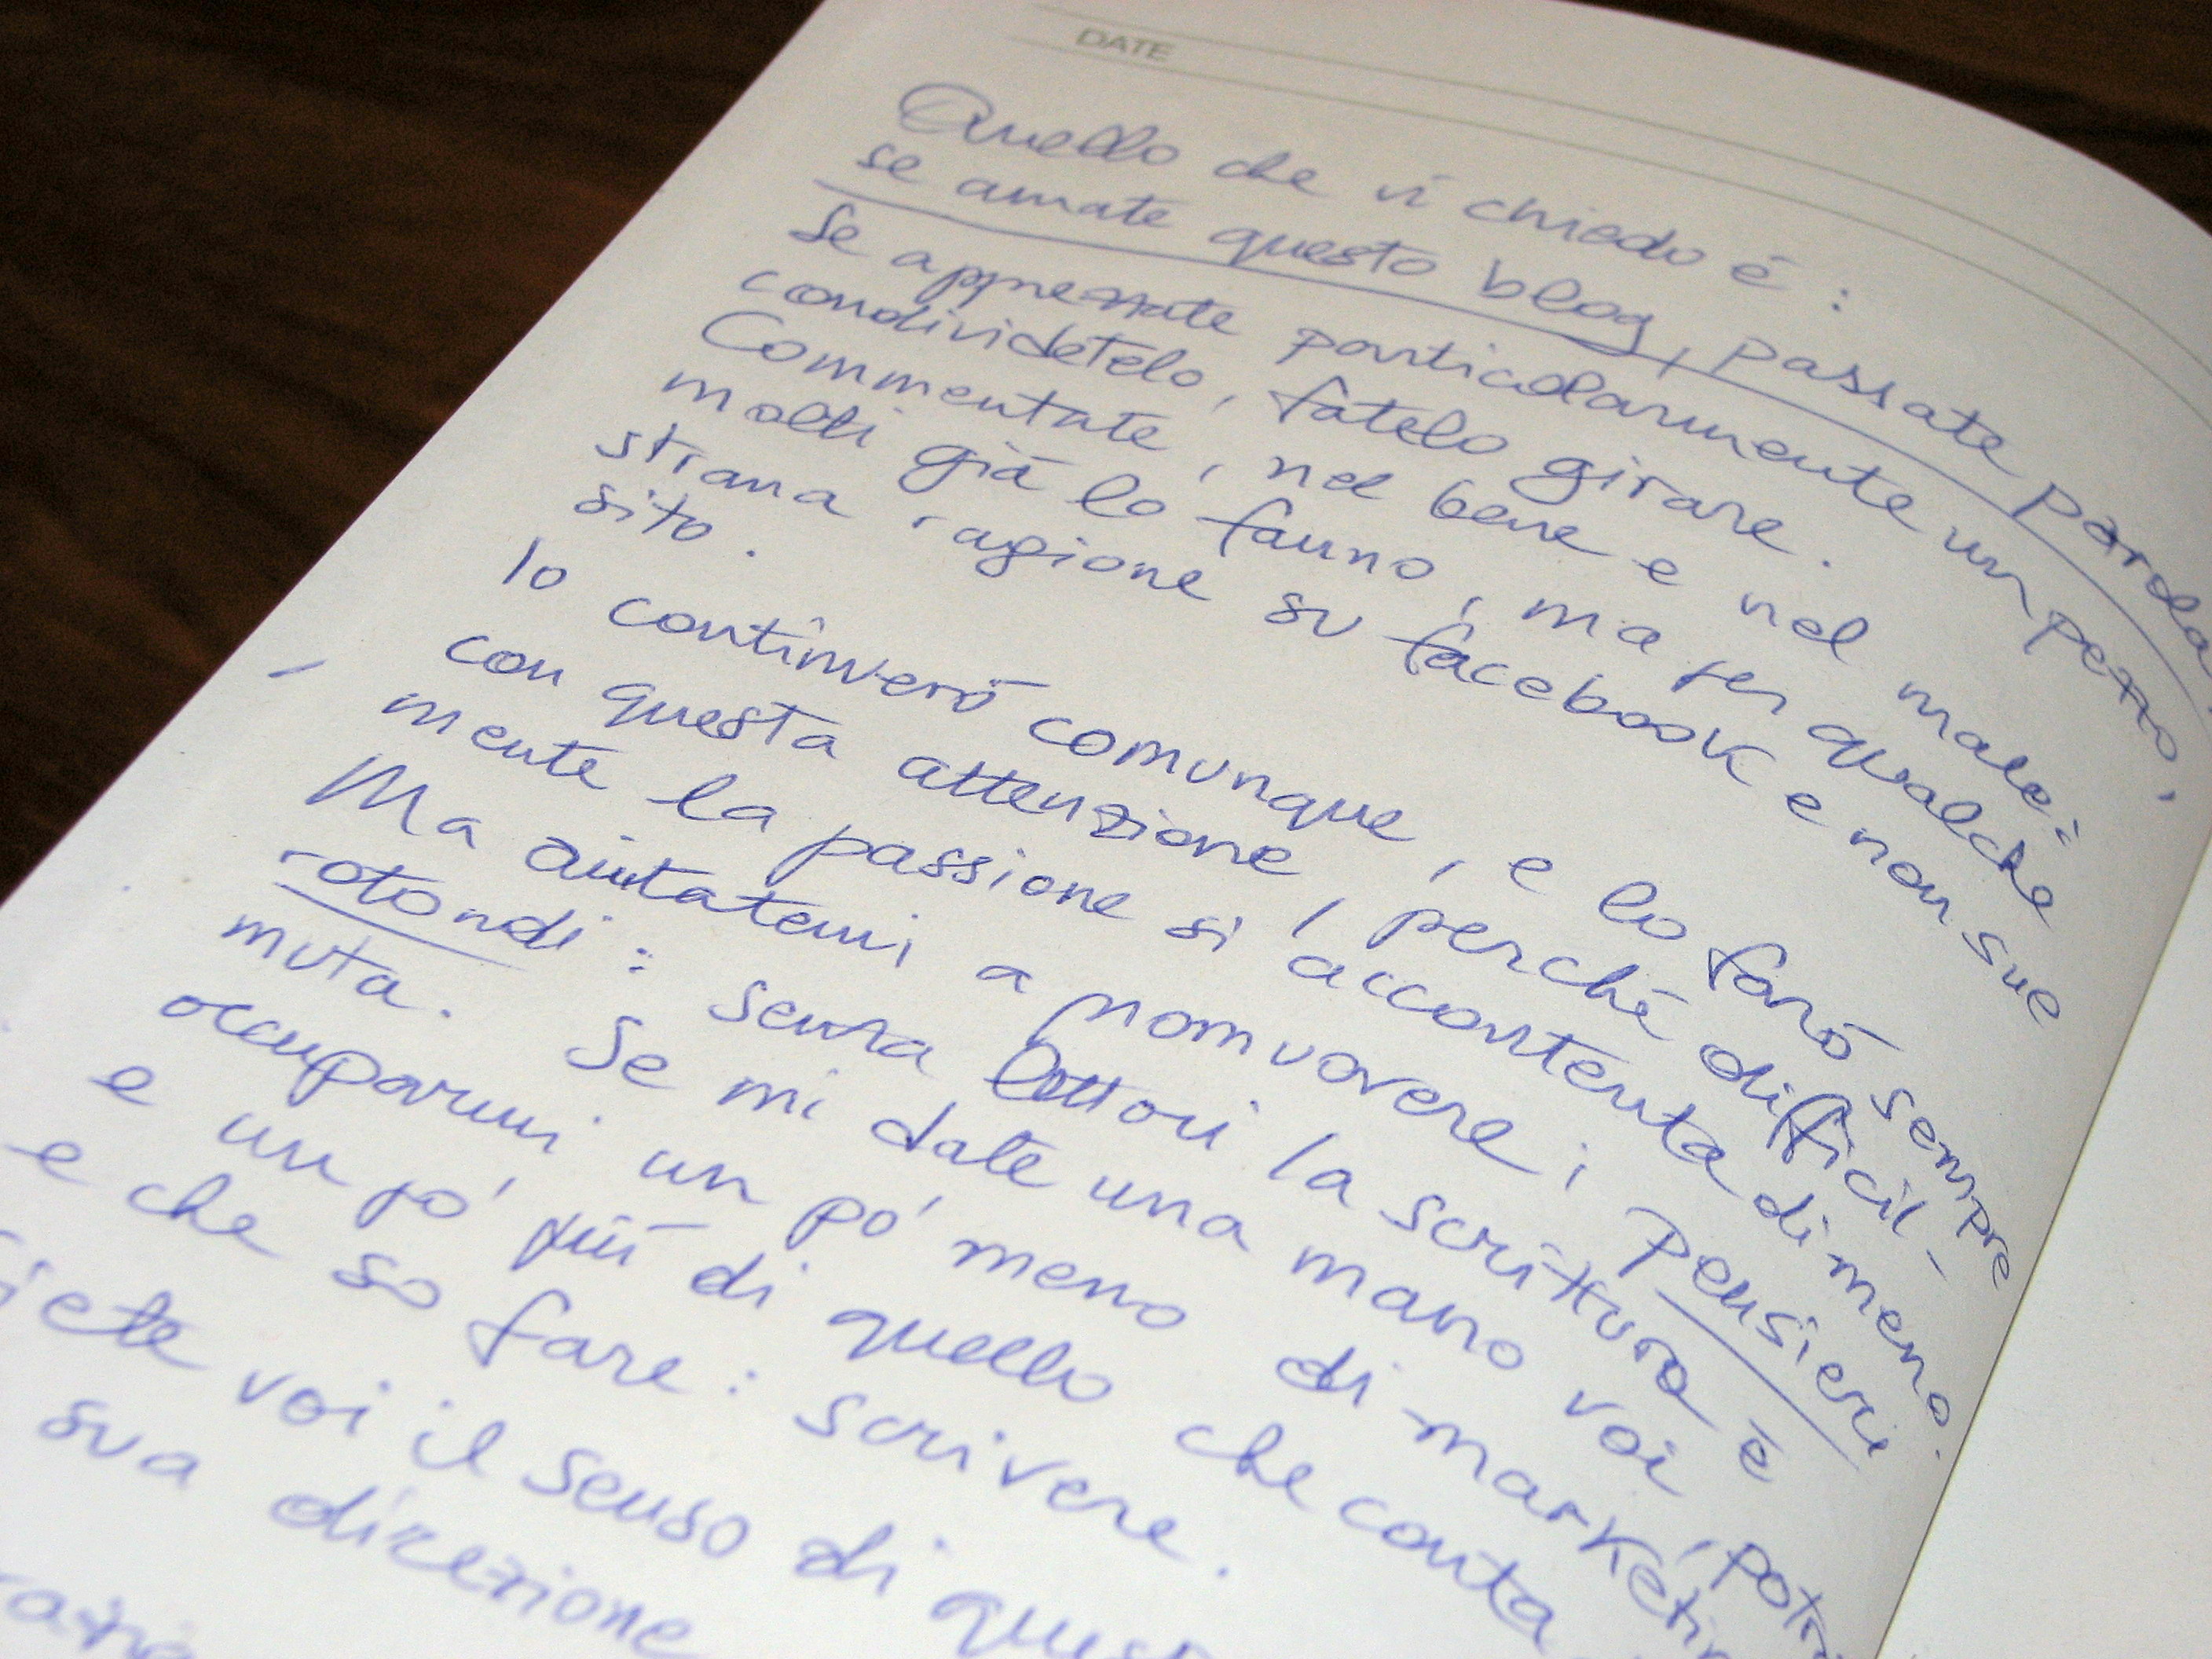 DATE
Quello che vi chiedo è:
se amate questo blog, passate parola
Se apprezzate particolarmente un pezzo,
condividetelo, fatelo girare.
Commentate, nel bene e nel male:
molti già lo fanno, ma per qualche
strana ragione su facebook e non sul
sito.
Io continuerò comunque, e lo farò sempre
con questa attenzione, perché difficil-
mente la passione si accontenta di meno.
Ma aiutatemi a promuovere i Pensieri
rotondi: senza lettori la scrittura è
muta. Se mi date una mano voi, potr
occuparmi un po' meno di marketin
e un po' più di quello che conta
e che so fare: scrivere.
siete voi il senso di quest
sua direzione